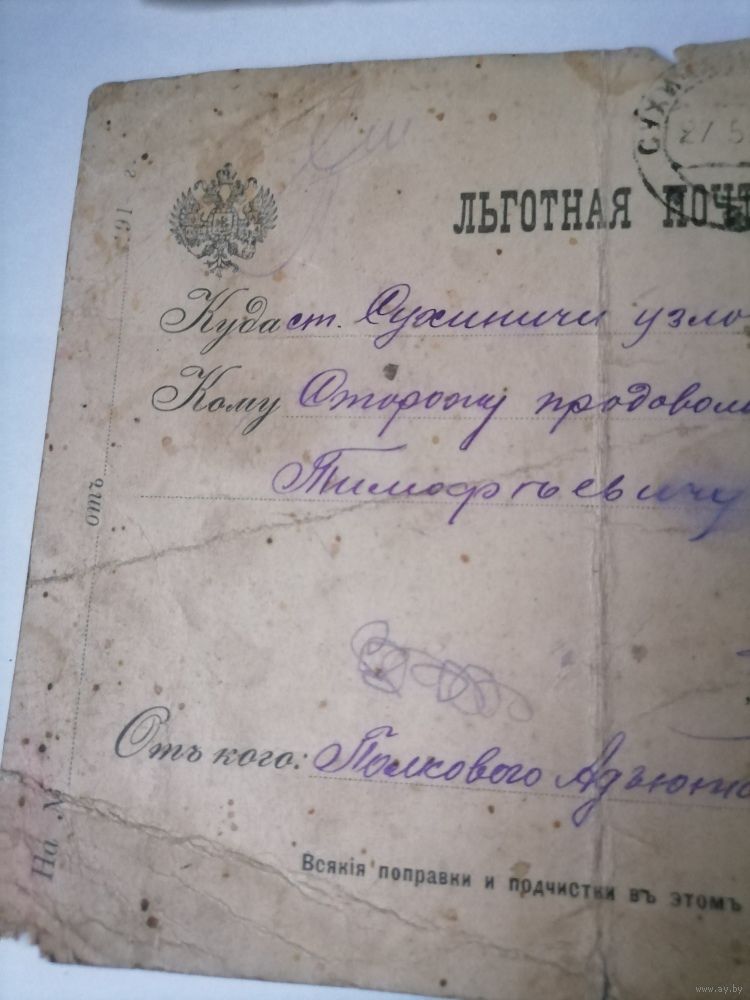 СУХИ
27 5
ЛЬГОТНАЯ ПОЧТ
Куда ст. Сухиничи узло
Кому Сторожу продоволь
Тимофѣевичу
Отъ кого: Полкового Адъюта
Всякія поправки и подчистки въ этомъ
191 г.
отъ
На №
www.ay.by